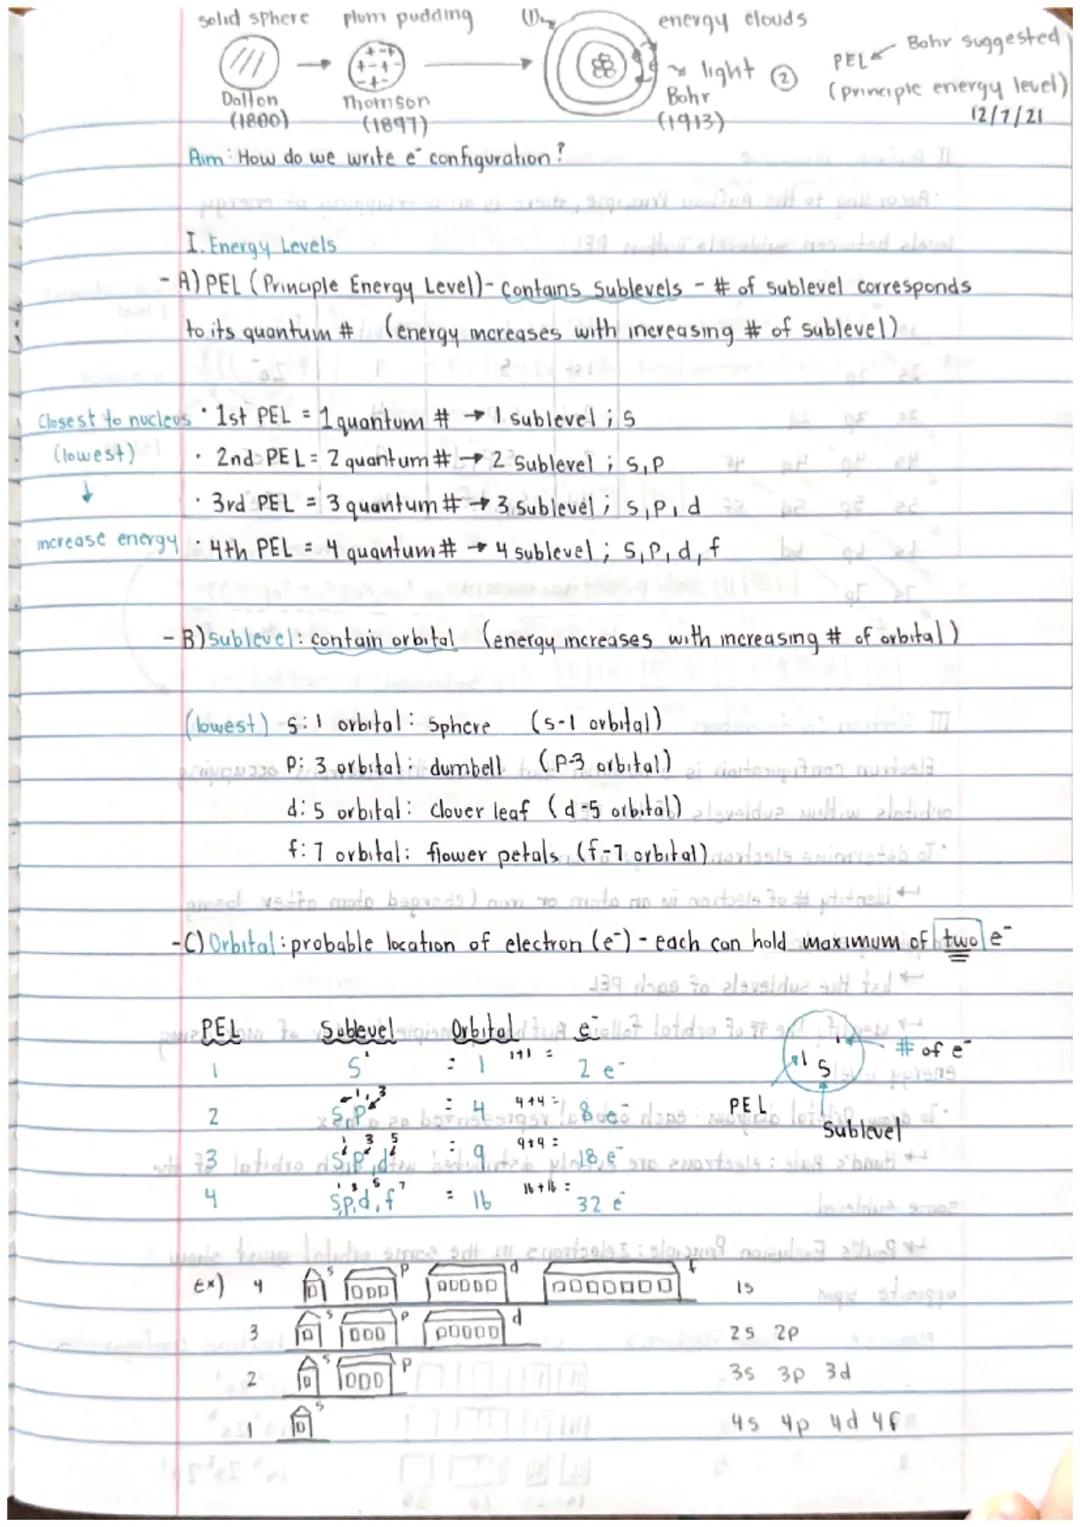 solid sphere plum pudding (1) energy clouds
Bohr suggested
PEL
light (2)
(principle energy level)
Dalton Thomson Bohr
(1800) (1897) (1913)
12/7/21
Aim: How do we write e⁻ configuration?
I. Energy Levels
- A) PEL (Principle Energy Level) - contains sublevels - # of sublevel corresponds
to its quantum # (energy increases with increasing # of sublevel)
Closest to nucleus • 1st PEL = 1 quantum # → 1 sublevel ; s
(lowest) • 2nd PEL = 2 quantum # → 2 sublevel ; s, p
↓ • 3rd PEL = 3 quantum # → 3 sublevel ; s, p, d
increase energy • 4th PEL = 4 quantum # → 4 sublevel ; s, p, d, f
- B) sublevel: contain orbital (energy increases with increasing # of orbital)
(lowest) s: 1 orbital: sphere (s-1 orbital)
p: 3 orbital: dumbell (p-3 orbital)
d: 5 orbital: clover leaf (d-5 orbital)
f: 7 orbital: flower petals (f-7 orbital)
- C) Orbital: probable location of electron (e⁻) - each can hold maximum of two e⁻
PEL Sublevel Orbital e⁻
1 s¹ = 1 1+1 = 2 e⁻
2 s¹, p³ = 4 4+4 = 8 e⁻
3 s¹, p³, d⁵ = 9 9+9 = 18 e⁻
4 s¹, p³, d⁵, f⁷ = 16 16+16 = 32 e⁻
1 s¹
# of e⁻
PEL
Sublevel
Ex) 4 s p d f 1s
3 s p d 2s 2p
2 s p 3s 3p 3d
1 s 4s 4p 4d 4f